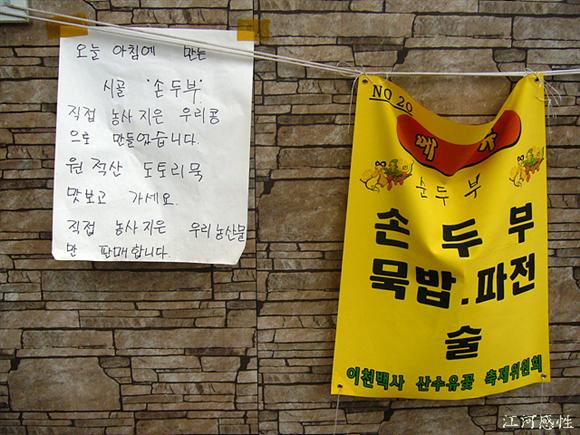 오늘 아침에 만든
시골 '손두부'
직접 농사 지은 우리콩
으로 만들었습니다.
원적산 도토리묵
맛보고 가세요.
직접 농사지은 우리농산물
만 판매합니다.
NO 20
메뉴
순두부
손두부
묵밥.파전
술
이천백사 산수유꽃 축제위원회
江河感性